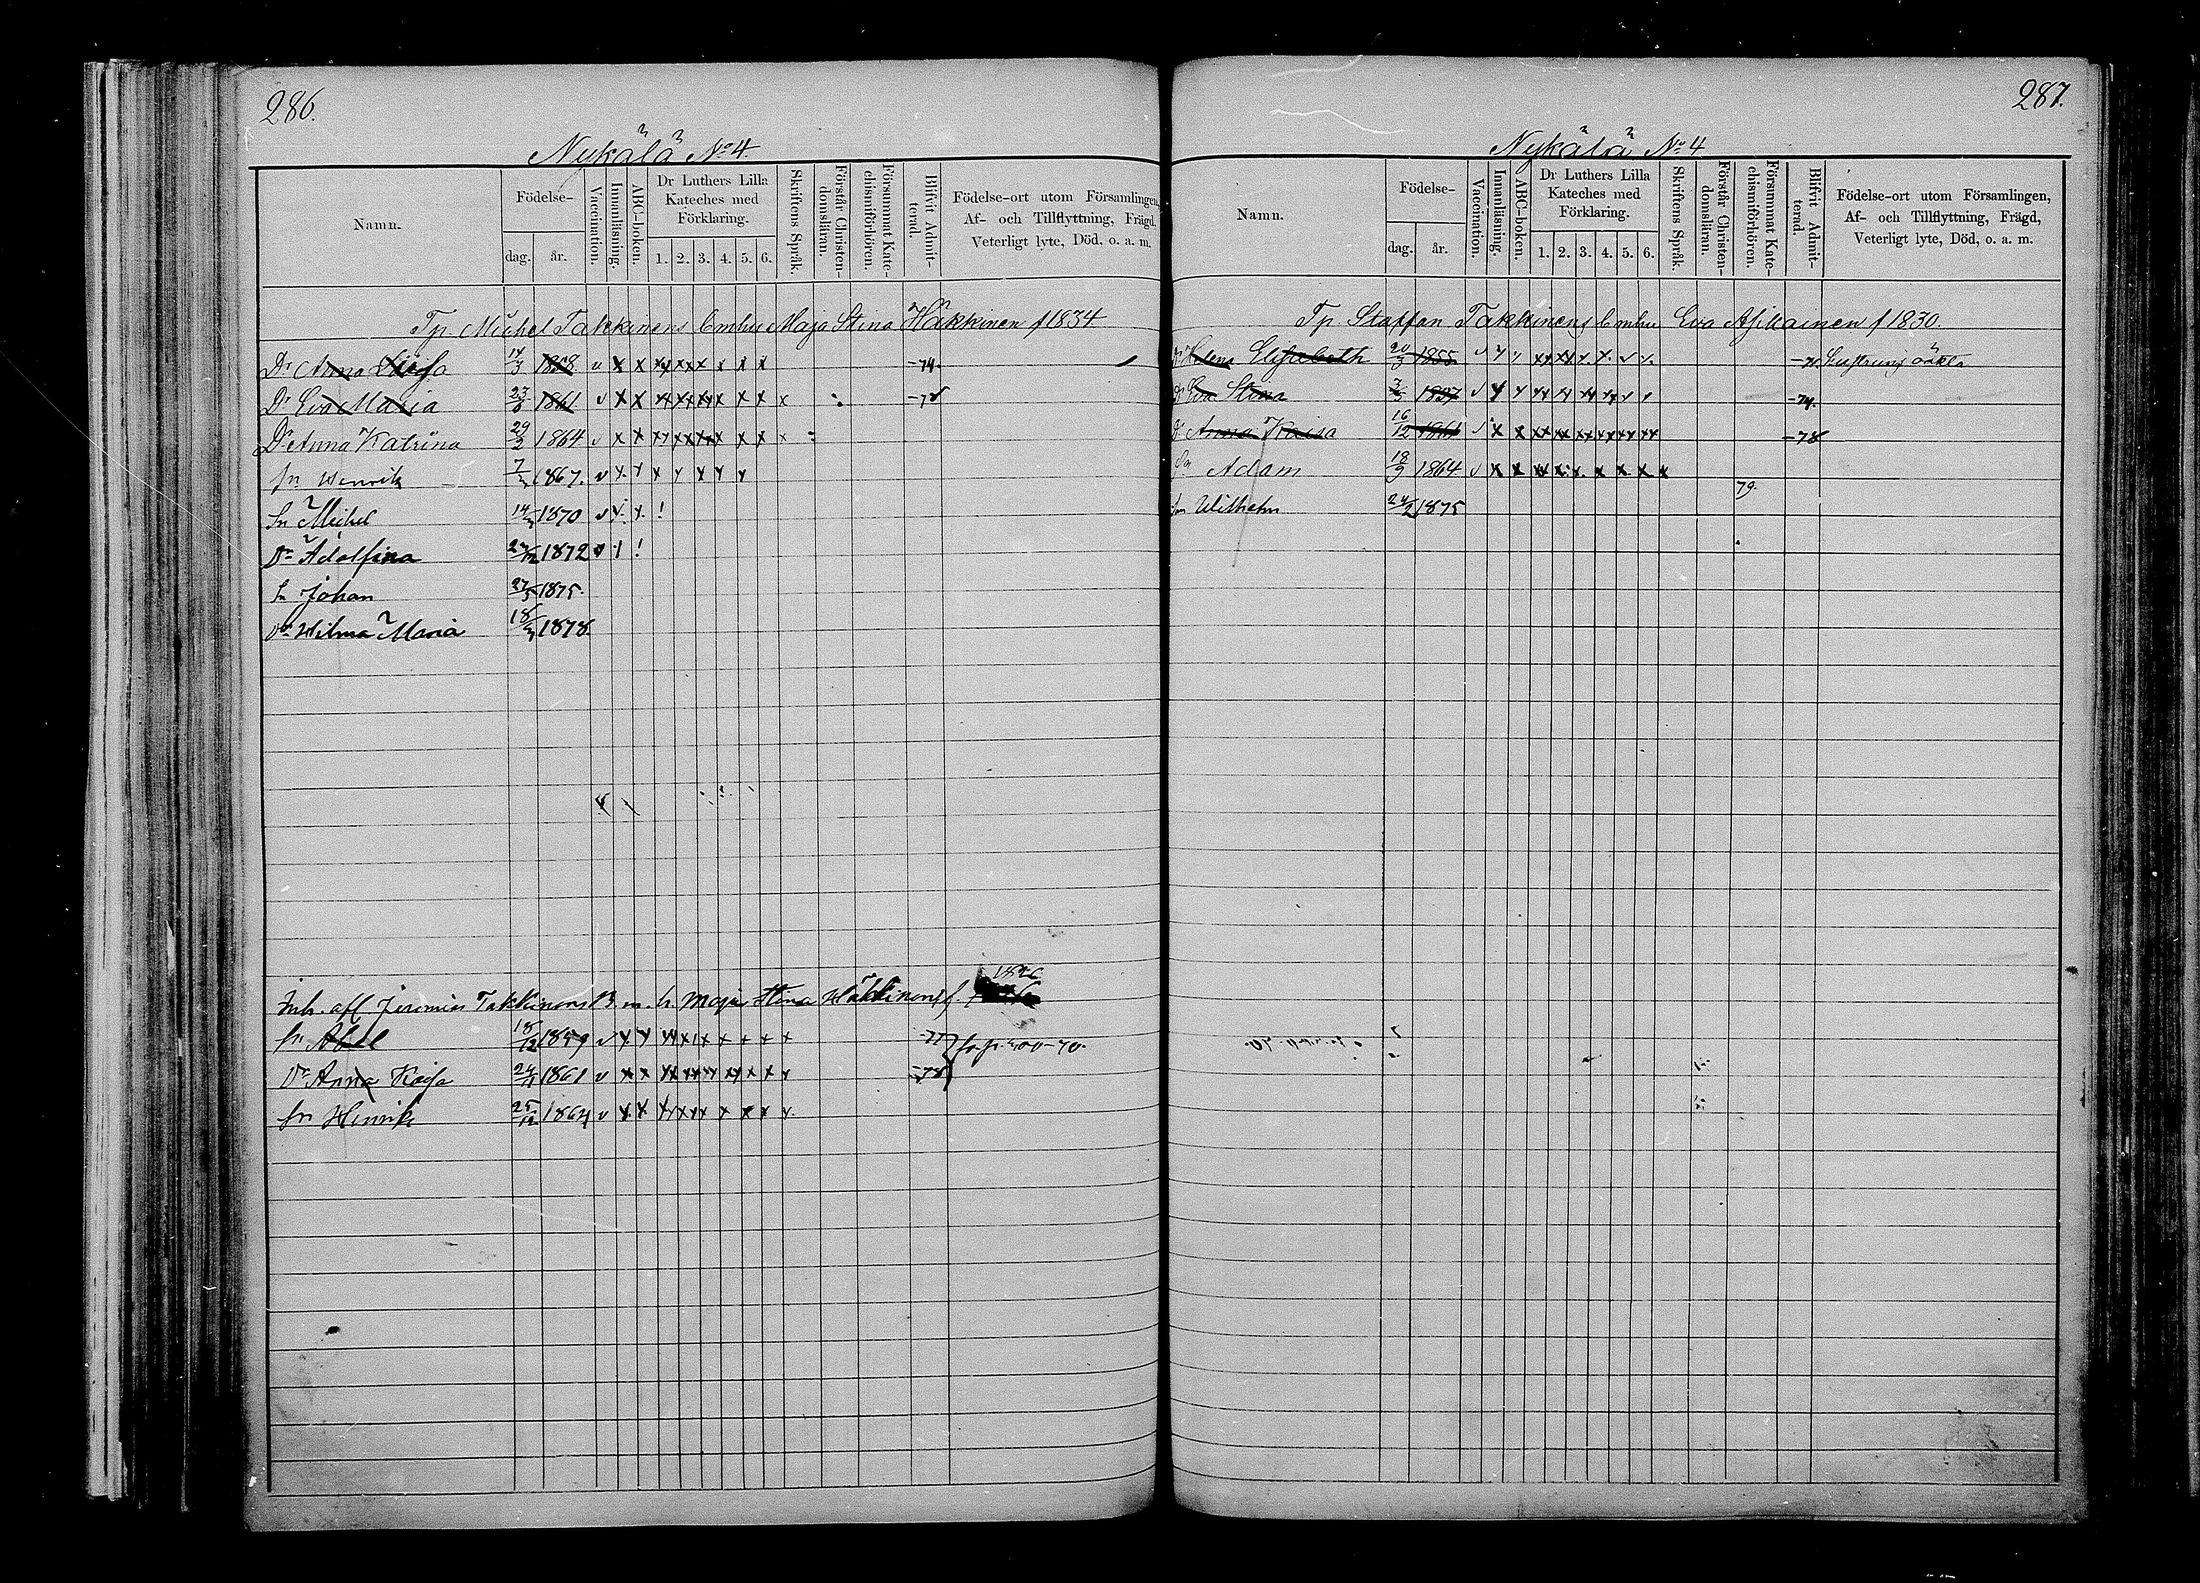 286.
Nykälä No 4.
Namn.
Födelse-
dag.
år.
Vaccination.
Innanläsning.
ABC-boken.
Dr Luthers Lilla
Kateches med
Förklaring.
1. 2. 3. 4. 5. 6.
Skriftens Språk.
Förstår Christen-
domslämn.
Försummat Kate-
chismiförhören.
Blifvit Admit-
terad.
Födelse-ort utom Församlingen,
Af- och Tillflyttning, Frägd,
Veterligt lyte, Död, o. a. m.
Tp. Michel Takkinens Enka Maja Stina Häkkinen f 1834.
Dr Anna 14/3 1858 v x x xx xxx x x x -74.
Dr Eva Maria 23/6 1861 v x x xx xxxx x x x
Dr Anna Katrina 29/2 1864 v x x xx xxxx x x x
Sn Henrik 1867. v x x x x x x x
Sn Michel 1870 v x. x. !
Dr Adolfina 1872 !
Sn Johan 1875.
Dr Wilma Maria 1878.
Maja Stina Häkkinens f. 1826
Jeremias Takkinens
Sn Abel 18/12 1859 v x x xx x x x x x x -77
Dr Anna Kajsa 1861 v x x xx xx x x x x -78
Sn Henrik 25/12 1864 v x x xx xx x x x x
287.
Nykälä No 4
Namn.
Födelse-
dag.
år.
Vaccination.
Innanläsning.
ABC-boken.
Dr Luthers Lilla
Kateches med
Förklaring.
1. 2. 3. 4. 5. 6.
Skriftens Språk.
Förstår Christen-
domslämn.
Försummat Kate-
chismiförhören.
Blifvit Admit-
terad.
Födelse-ort utom Församlingen,
Af- och Tillflyttning, Frägd,
Veterligt lyte, Död, o. a. m.
Tp. Staffan Takkinens Enka Eva Asikainen f 1830.
Dr Helena Elisabeth 20/3 1855
Dr Eva Stina 1857 -74.
Dr Anna Kaisa 16/12 1861 -78
Sn Adam 18/9 1864 v x x xx x x x x x x
79.
Sn Wilhelm 24/2 1875